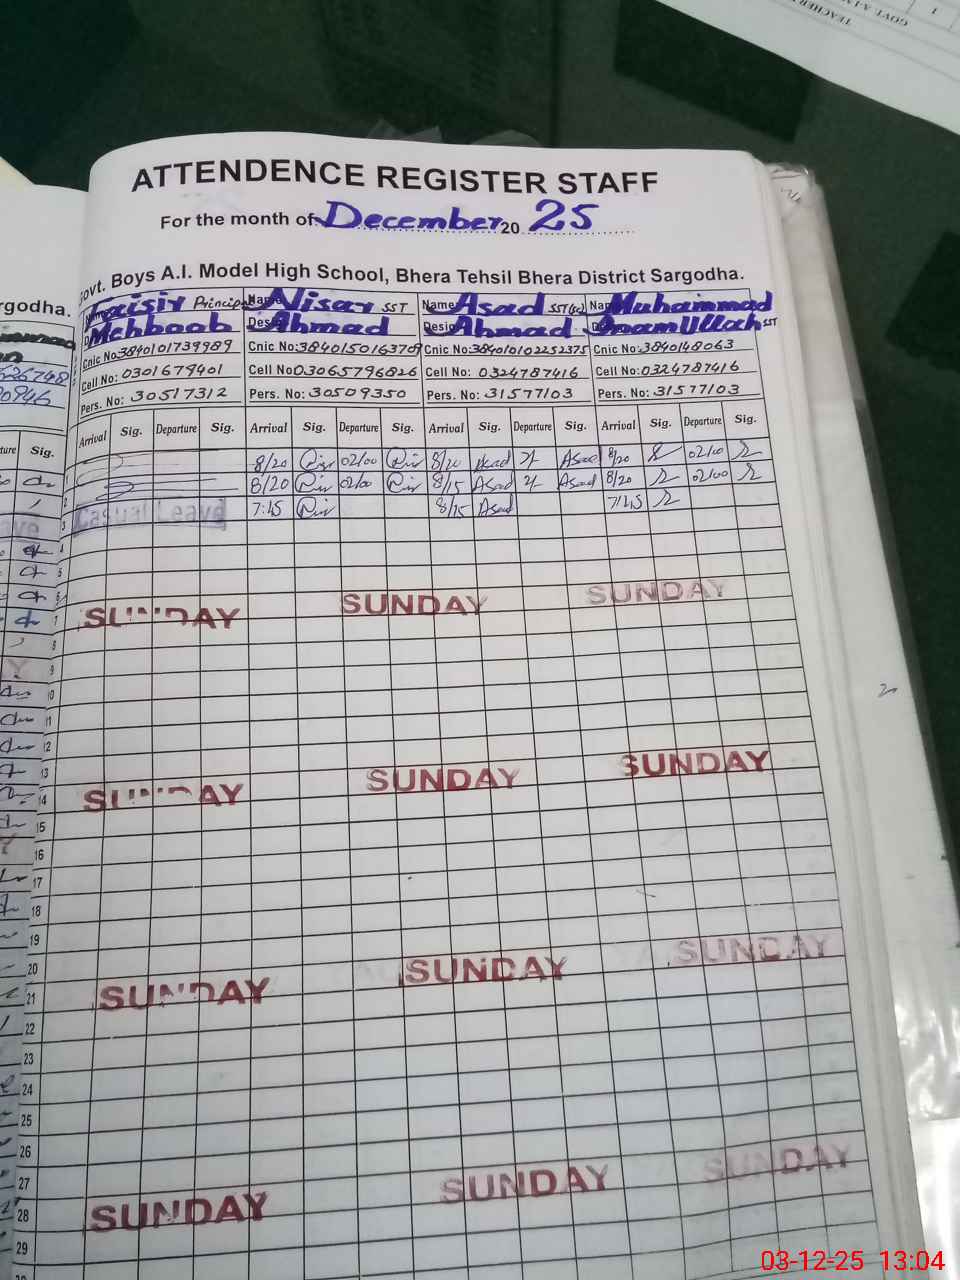 ATTENDENCE REGISTER STAFF
For the month of December 20 25
ovt. Boys A.I. Model High School, Bhera Tehsil Bhera District Sargodha.
rgodha.
Qaisir Principal Name Nisar SST Name Asad SST(sc) Muhammad
Mehboob Desig Ahmad Desig Ahmad InamUllah SST
Cnic No: 3840101739989 Cnic No: 3840150163709 Cnic No: 3840101022 52375 Cnic No: 3840148063
Cell No: 0301679401 Cell No 03065796826 Cell No: 0324787416 Cell No: 0324787416
Pers. No: 30517312 Pers. No: 30509350 Pers. No: 31577103 Pers. No: 31577103
Sig. Arrival Sig. Departure Sig. Arrival Sig. Departure Sig. Arrival Sig. Departure Sig. Arrival Sig. Departure Sig.
1 8/20 02/00 8/20 Asad Asad 8/20 02/00
2 8/20 02/00 8/15 Asad Asad 8/20 02/00
3 Casual Leave 7:45 8/15 Asad 7:45
4
5
6
7 SUNDAY SUNDAY SUNDAY
8
9
10
11
12
13
14 SUNDAY SUNDAY SUNDAY
15
16
17
18
19
20
21 SUNDAY SUNDAY SUNDAY
22
23
24
25
26
27
28 SUNDAY SUNDAY SUNDAY
29
03-12-25 13:04